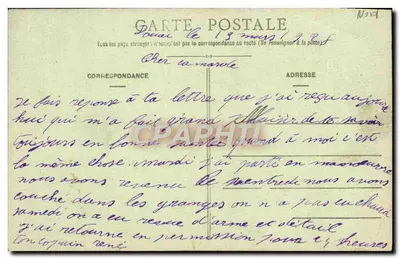 CARTE POSTALE
Douai le 13 mars
Tous les pays étrangers n'acceptent pas la correspondance au recto (Se renseigner à la poste)
Cher camarade
CORRESPONDANCE ADRESSE
Je fais reponse à ta lettre que j'ai reçu aujour
hui qui m'a fait grand plaisir de te savoir
toujours en bonne santé quand à moi c'est
la même chose. mardi j'ai parti en manoeuvre
nous avons revenu le nous avons
couché dans les granges on n a pas eu chaud
samedi on a eu revue d'arme et détail
j'ai retourne en permission pour 24 heures
ton copain rené
CPARAMA